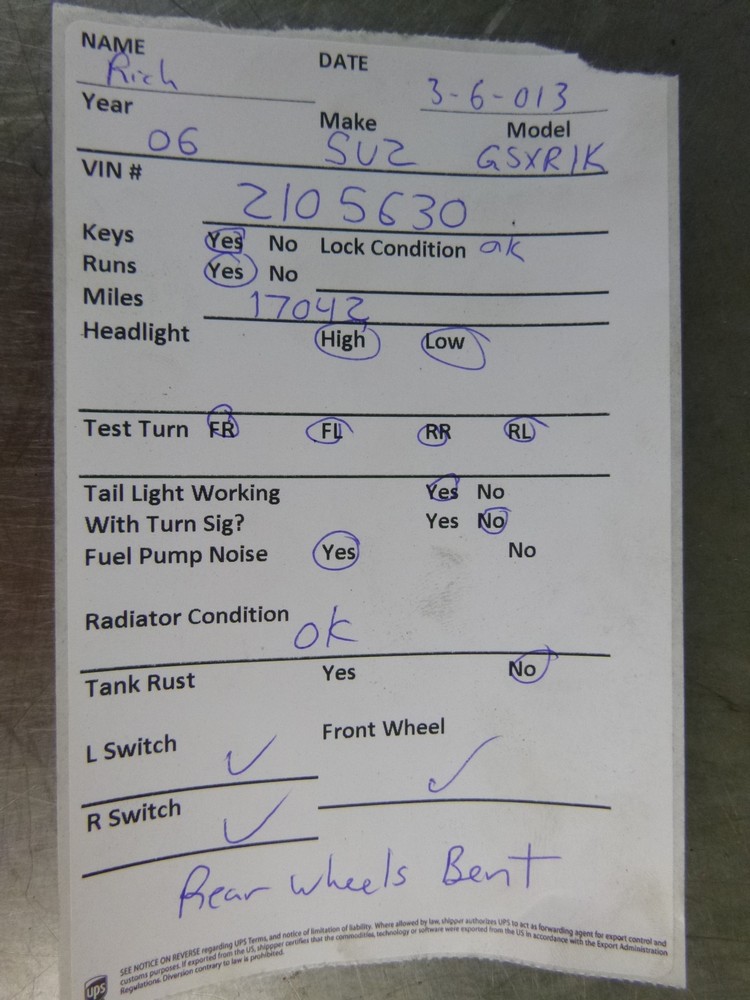 NAME Rich DATE 3-6-013
Year 06 Make SUZ Model GSXR1K
VIN # 2105630
Keys Yes No Lock Condition ok
Runs Yes No
Miles 17042
Headlight High Low
Test Turn FR FL RR RL
Tail Light Working Yes No
With Turn Sig? Yes No
Fuel Pump Noise Yes No
Radiator Condition OK
Tank Rust Yes No
L Switch ✓ Front Wheel ✓
R Switch ✓
Rear wheels Bent
SEE NOTICE ON REVERSE regarding UPS Terms, and notice of limitation of liability. Where allowed by law, shipper authorizes UPS to act as forwarding agent for export control and
customs purposes. If exported from the US, shippper certifies that the commodities, technology or software were exported from the US in accordance with the Export Administration
Regulations. Diversion contrary to law is prohibited.
ups